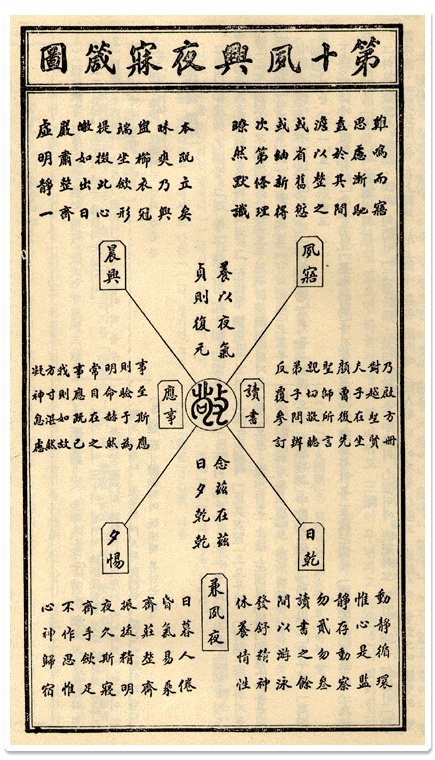 第十夙興夜寐箴圖
雞鳴而寤
思慮漸馳
盍於其間
澹以整之
或省舊愆
或紬新得
次第條理
瞭然默識
本旣立矣
昧爽乃興
盥櫛衣冠
端坐斂形
提掇此心
皦如出日
嚴肅整齊
虛明靜一
夙寤
晨興
養以夜氣
貞則復元
乃啟方冊
對越聖賢
夫子在坐
顏曾後先
聖師所言
親切敬聽
弟子問辨
反覆參訂
讀書
敬
應事
事至斯應
則驗于爲
明命赫然
常目在之
事應旣已
我則如故
方寸湛然
凝神息慮
念茲在茲
日夕乾乾
日乾
夕惕
兼夙夜
動靜循環
惟心是監
靜存動察
勿貳勿參
讀書之餘
間以游泳
發舒精神
休養情性
日暮人倦
昏氣易乘
齋莊整齊
振拔精明
夜久斯寢
齊手斂足
不作思惟
心神歸宿